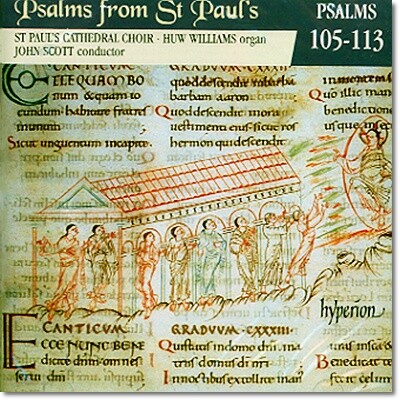 Psalms from St Paul's
PSALMS
105-113
ST PAUL'S CATHEDRAL CHOIR · HUW WILLIAMS organ
JOHN SCOTT conductor
CANTICUM
GRADUUM
ECCE QUAM BO
num & quam io
cundum · habitare fratres
in unum
Sicut unguentum in capite ·
quod descendit in barbam
barbam aaron
Quod descendit in ora
vestimenti eius · sicut ros
hermon qui descendit
Quo illic man
benedictione
usque in
hyperion
CANTICUM
GRADUUM · CXXXIII ·
ECCE NUNC BENE
dicite dnm · om nes
servi dni
Qui statis in domo dni · in a
triis domus di nri
In noctibus extollite man
Benedicat